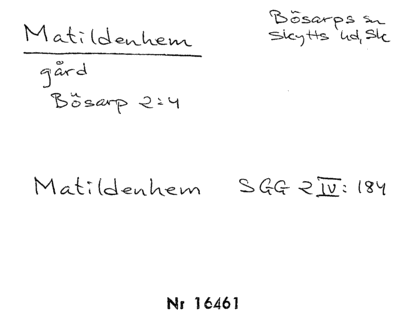 Matildenhem
Bösarps sn
Skytts hd, Sk
gård
Bösarp 2:4
Matildenhem SGG 2 IV: 184
Nr 16461